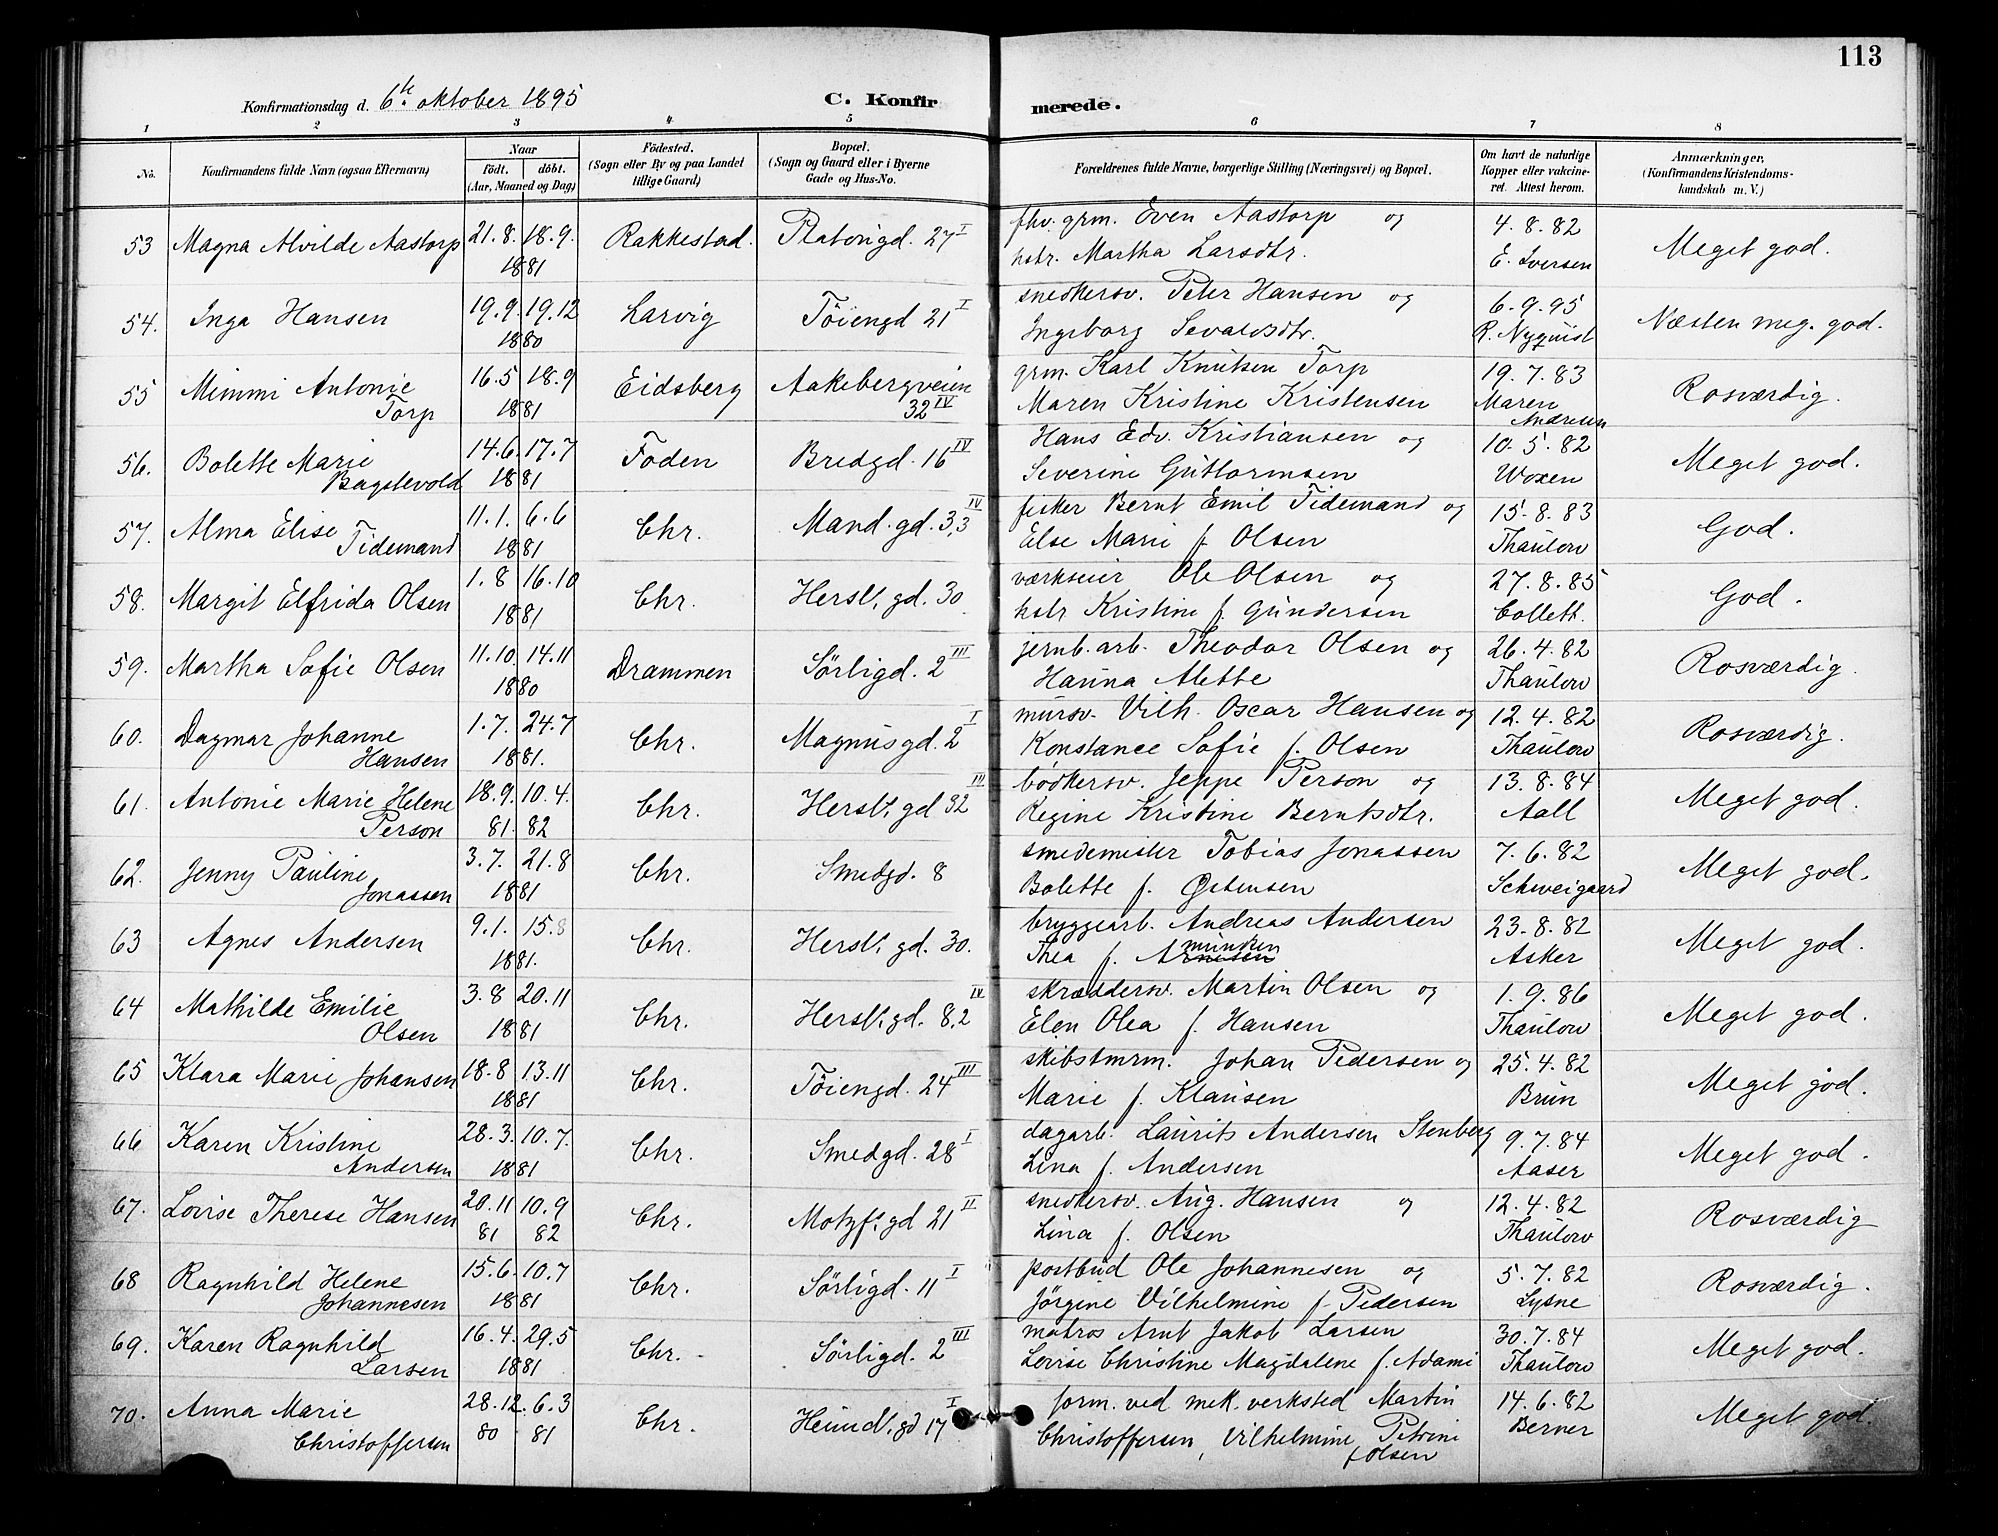 113
Konfirmationsdag d. 6te oktober 1895
C. Konfirmerede.
1 2 3 4 5 6 7 8
No.
Konfirmandens fulde Navn (ogsaa Efternavn)
Naar
födt. döbt.
(Aar, Maaned og Dag)
Födested.
(Sogn eller By og paa Landet
tillige Gaard)
Bopæl.
(Sogn og Gaard eller i Byerne
Gade og Hus-No.
Forældrenes fulde Navne, borgerlige Stilling (Næringsvei) og Bopæl.
Om havt de naturlige
Kopper eller vakcine-
ret. Attest herom.
Anmærkninger,
(Konfirmandens Kristendoms-
kundskab m. V.)
53 Magna Alvilde Aastorp 21.8. 18.9. Rakkestad. Platougd. 27 I fhv. grm. Even Aastorp og 4.8.82 Meget god.
1881 hstr. Martha Larsdtr. E. Iversen
54. Inga Hansen 19.9. 19.12 Larvig Töiengd 21 I snedkersv. Peter Hansen og 6.9.95 Næsten meg. god.
1880 Ingeborg Sevaldsdtr. R. Nyquist
55 Mimmi Antonie 16.5 18.9 Eidsberg Aakebergveien grm. Karl Knutsen Torp 19.7.83 Rosværdig.
Torp 1881 32 IV Maren Kristine Kristensen Maren
Andresen
56. Bolette Marie 14.6. 17.7 Foden Bredgd. 16 IV Hans Edv. Kristiansen og 10.5.82 Meget god.
Bagstevold 1881 Severine Guttormsen Woxen
57. Alma Elise 11.1. 6.6 Chr. Mand. gd. 3,3 IV fisker Bernt Emil Tidemand og 15.8.83 God.
Tidemand 1881 Else Marie f. Olsen Thaulow
58. Margit Elfrida Olsen 1.8 16.10 Chr. Hersl. gd. 30 værkseier Ole Olsen og 27.8.85 God.
1881 hstr Kristine f. Gundersen Collett.
59. Martha Sofie Olsen 11.10. 14.11 Drammen Sörligd. 2 III jernb. arb. Theodor Olsen og 26.4.82 Rosværdig.
1880 Hanna Alette Thaulow
60. Dagmar Johanne 1.7. 24.7 Chr. Magnusgd. 2 I mursv. Vilh. Oscar Hansen og 12.4.82 Rosværdig.
Hansen 1881. Konstance Sofie f. Olsen Thaulow
61. Antonie Marie Helene 18.9. 10.4. Chr. Hersl. gd 32 III bödkersv. Jeppe Person og 13.8.84 Meget god.
Person 81. 82 Regine Kristine Berntsdtr. Aall
62. Jenny Pauline 3.7. 21.8 Chr. Smedgd. 8 smedemester Tobias Jonassen 7.6.82 Meget god.
Jonassen 1881 Bolette f. Östensen Schweigaard
63 Agnes Andersen 9.1. 15.8 Chr. Hersl. gd. 30. bryggearb. Andreas Andersen 23.8.82 Meget god.
1881. Thea f. Amunsen Asker
64 Mathilde Emilie 3.8 20.11 Chr. Hersl. gd. 8,2 IV skræddersv. Martin Olsen og 1.9.86 Meget god.
Olsen 1881 Elen Olea f. Hansen Thaulow
65 Klara Marie Johansen 18.8 13.11 Chr. Töiengd. 24 III skibstmrm. Johan Pedersen og 25.4.82 Meget god.
1881 Marie f. Klausen Brun
66 Karen Kristine 28.3. 10.7. Chr. Smedgd. 28 I dagarb. Laurits Andersen Stenberg 9.7.84 Meget god.
Andersen 1881 Lina f. Andersen Aaser
67. Lovise Therese Hansen 20.11 10.9 Chr. Motzf. gd 21 II snedkersv. Aug. Hansen og 12.4.82 Rosværdig
81 82 Lina f. Olsen Thaulow
68 Ragnhild Helene 15.6. 10.7 Chr. Sörligd. 11 I postbud Ole Johannesen og 5.7.82 Rosværdig.
Johannesen 1881 Jörgine Vilhelmine f. Pedersen Lysne
69. Karen Ragnhild 16.4. 29.5 Chr. Sörligd. 2 III matros Arnt Jakob Larsen 30.7.84 Meget god.
Larsen 1881 Lovise Christine Magdalene f. Adami Thaulow
70. Anna Marie 28.12. 6.3 Chr. Heimdl. gd 17 I form. ved mek. verksted Martin 14.6.82 Meget god.
Christoffersen 80 81 Christoffersen, Vilhelmine Petrine Berner
f Olsen